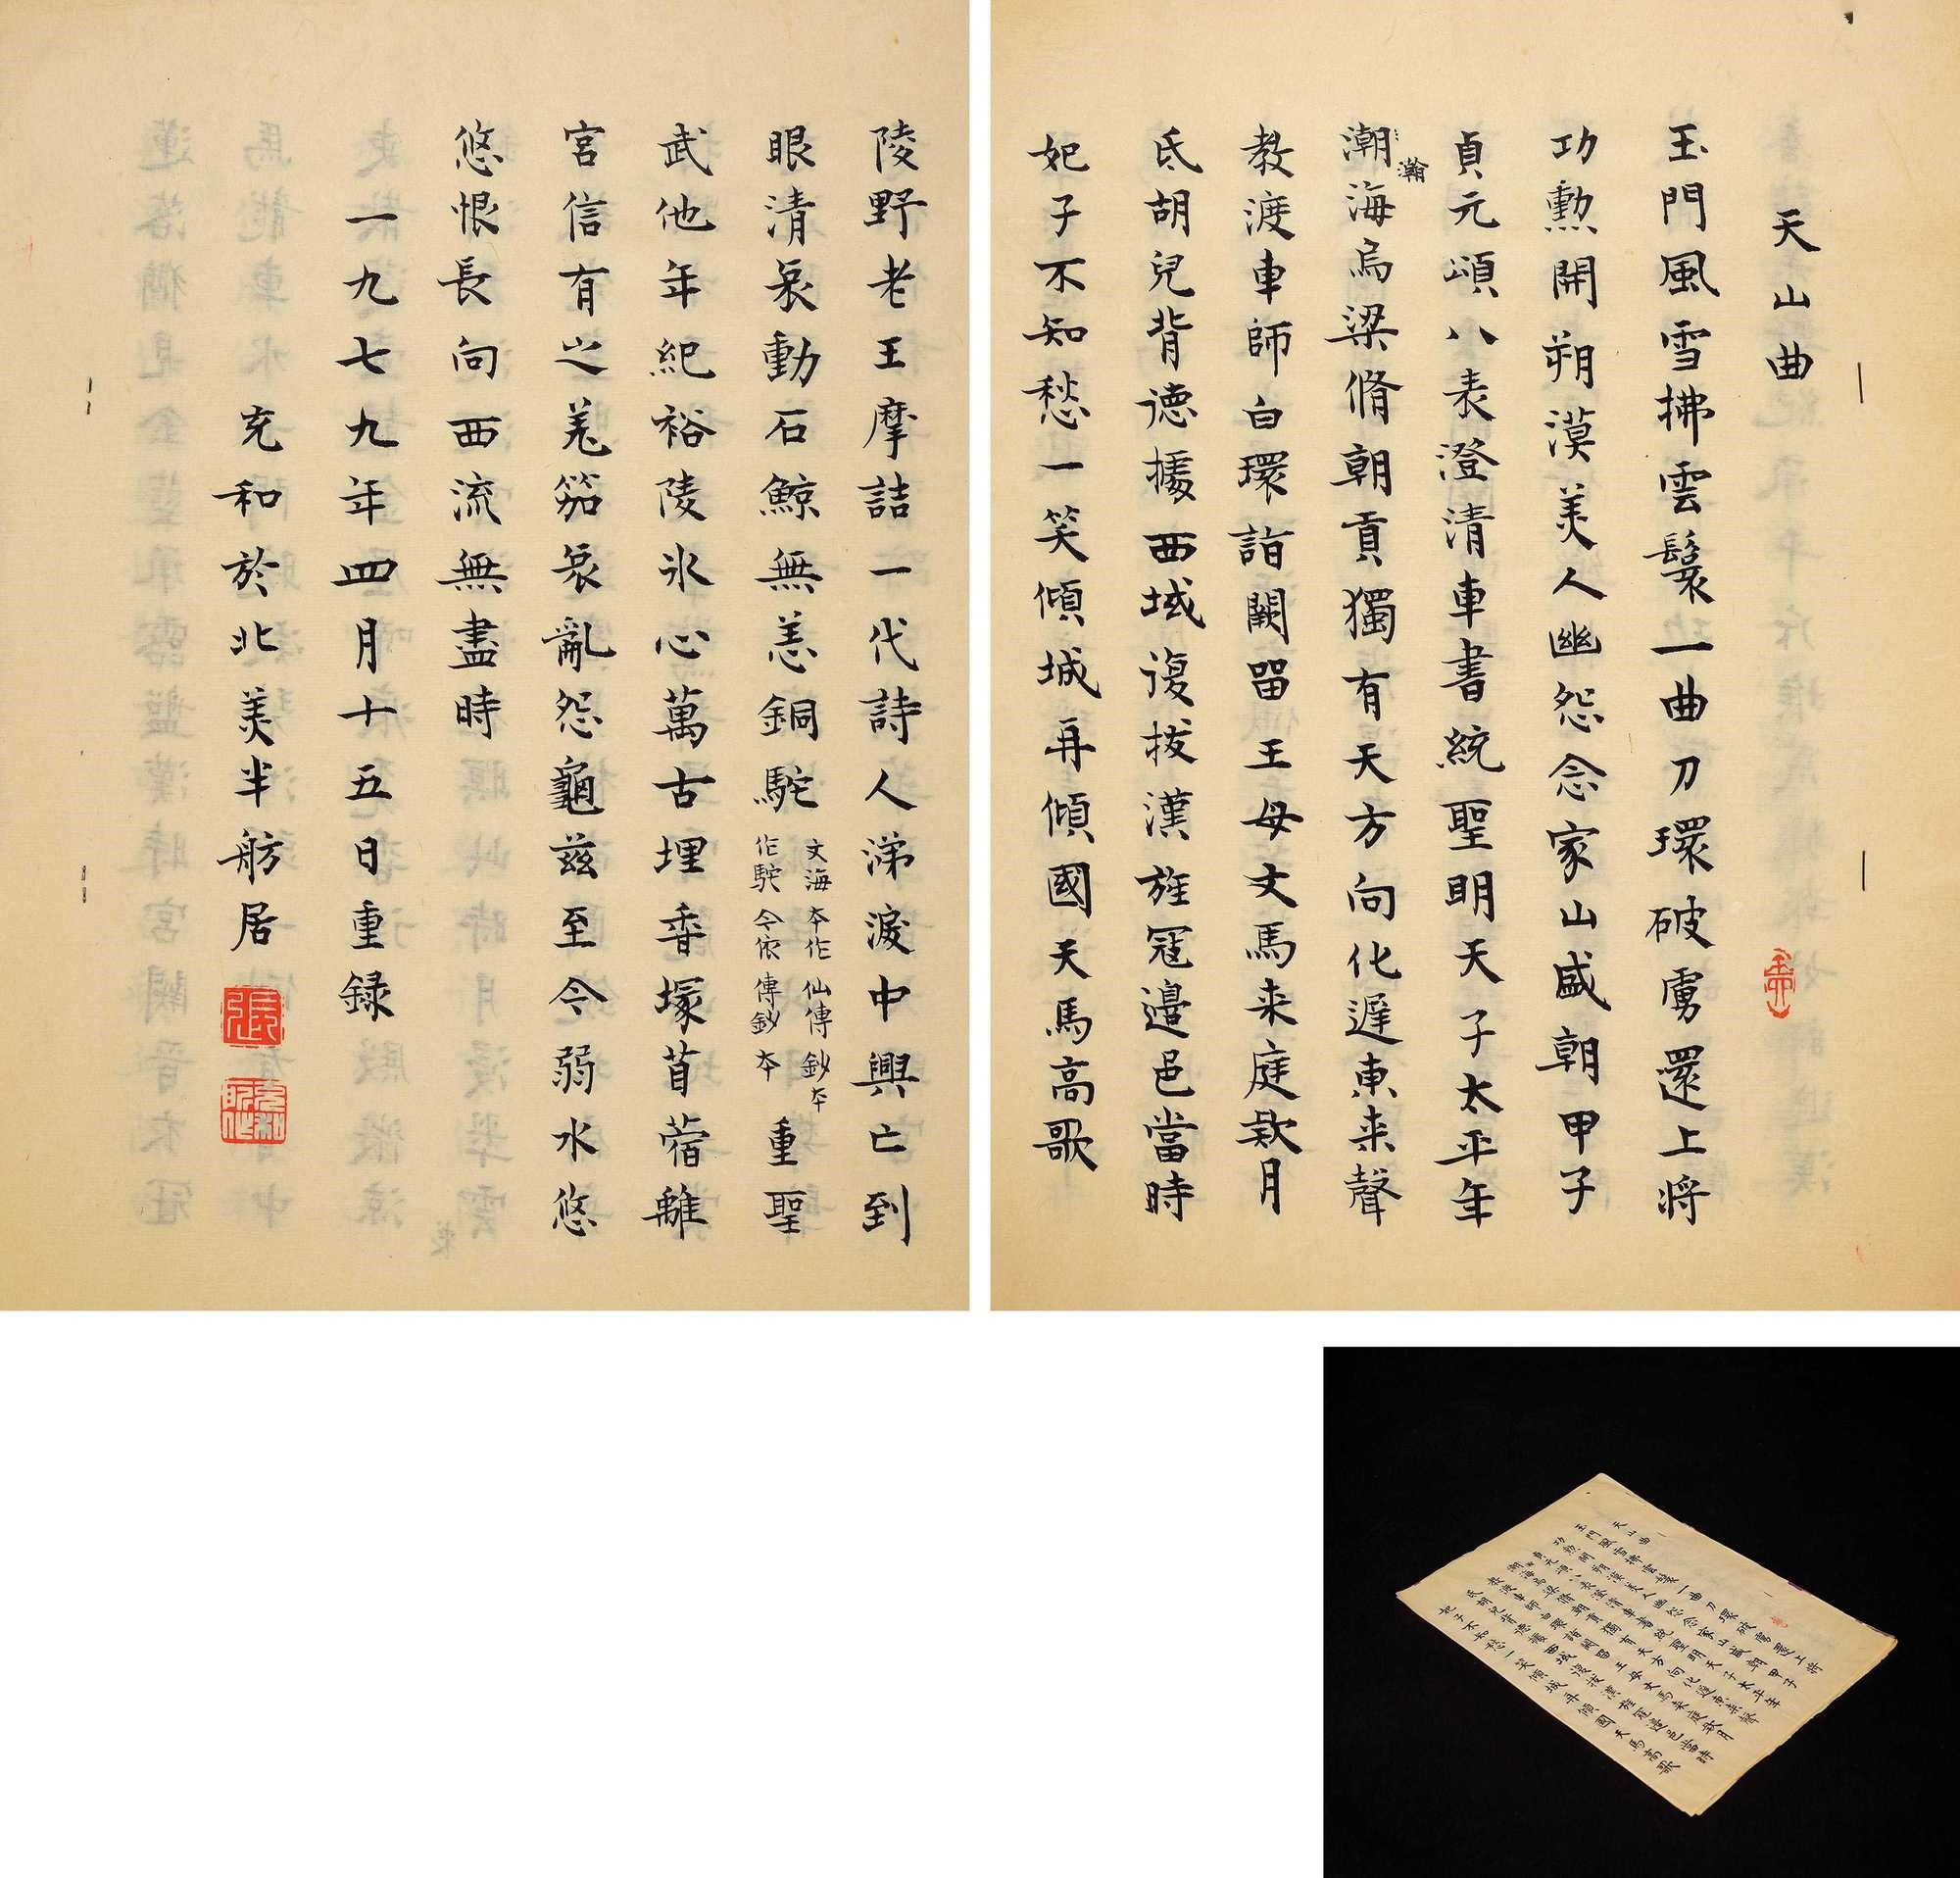 天山曲
玉門風雪拂雲鬟一曲刀環破虜還上將
功勳開朔漠美人幽怨念家山盛朝甲子
貞元頌八表澄清車書統聖明天子太平年
潮海烏梁脩朝貢獨有天方向化遲東來聲
瀚
教渡車師白環詣闕留王母文馬来庭欵月
氏胡兒背德據西域復拔漢旌冠邊邑當時
妃子不知愁一笑傾城再傾國天馬高歌
陵野老王摩詰一代詩人涕淚中興亡到
眼清泉動石鯨無恙銅駝
文海本作仙傳鈔本
作駝今依傳鈔本
重聖
武他年紀裕陵氷心萬古埋香塚苜蓿離
宮信有之羗笳哀亂怨龜兹至今弱水悠
悠恨長向西流無盡時
一九七九年四月十五日重録
充和於北美半舫居
張
充和所作